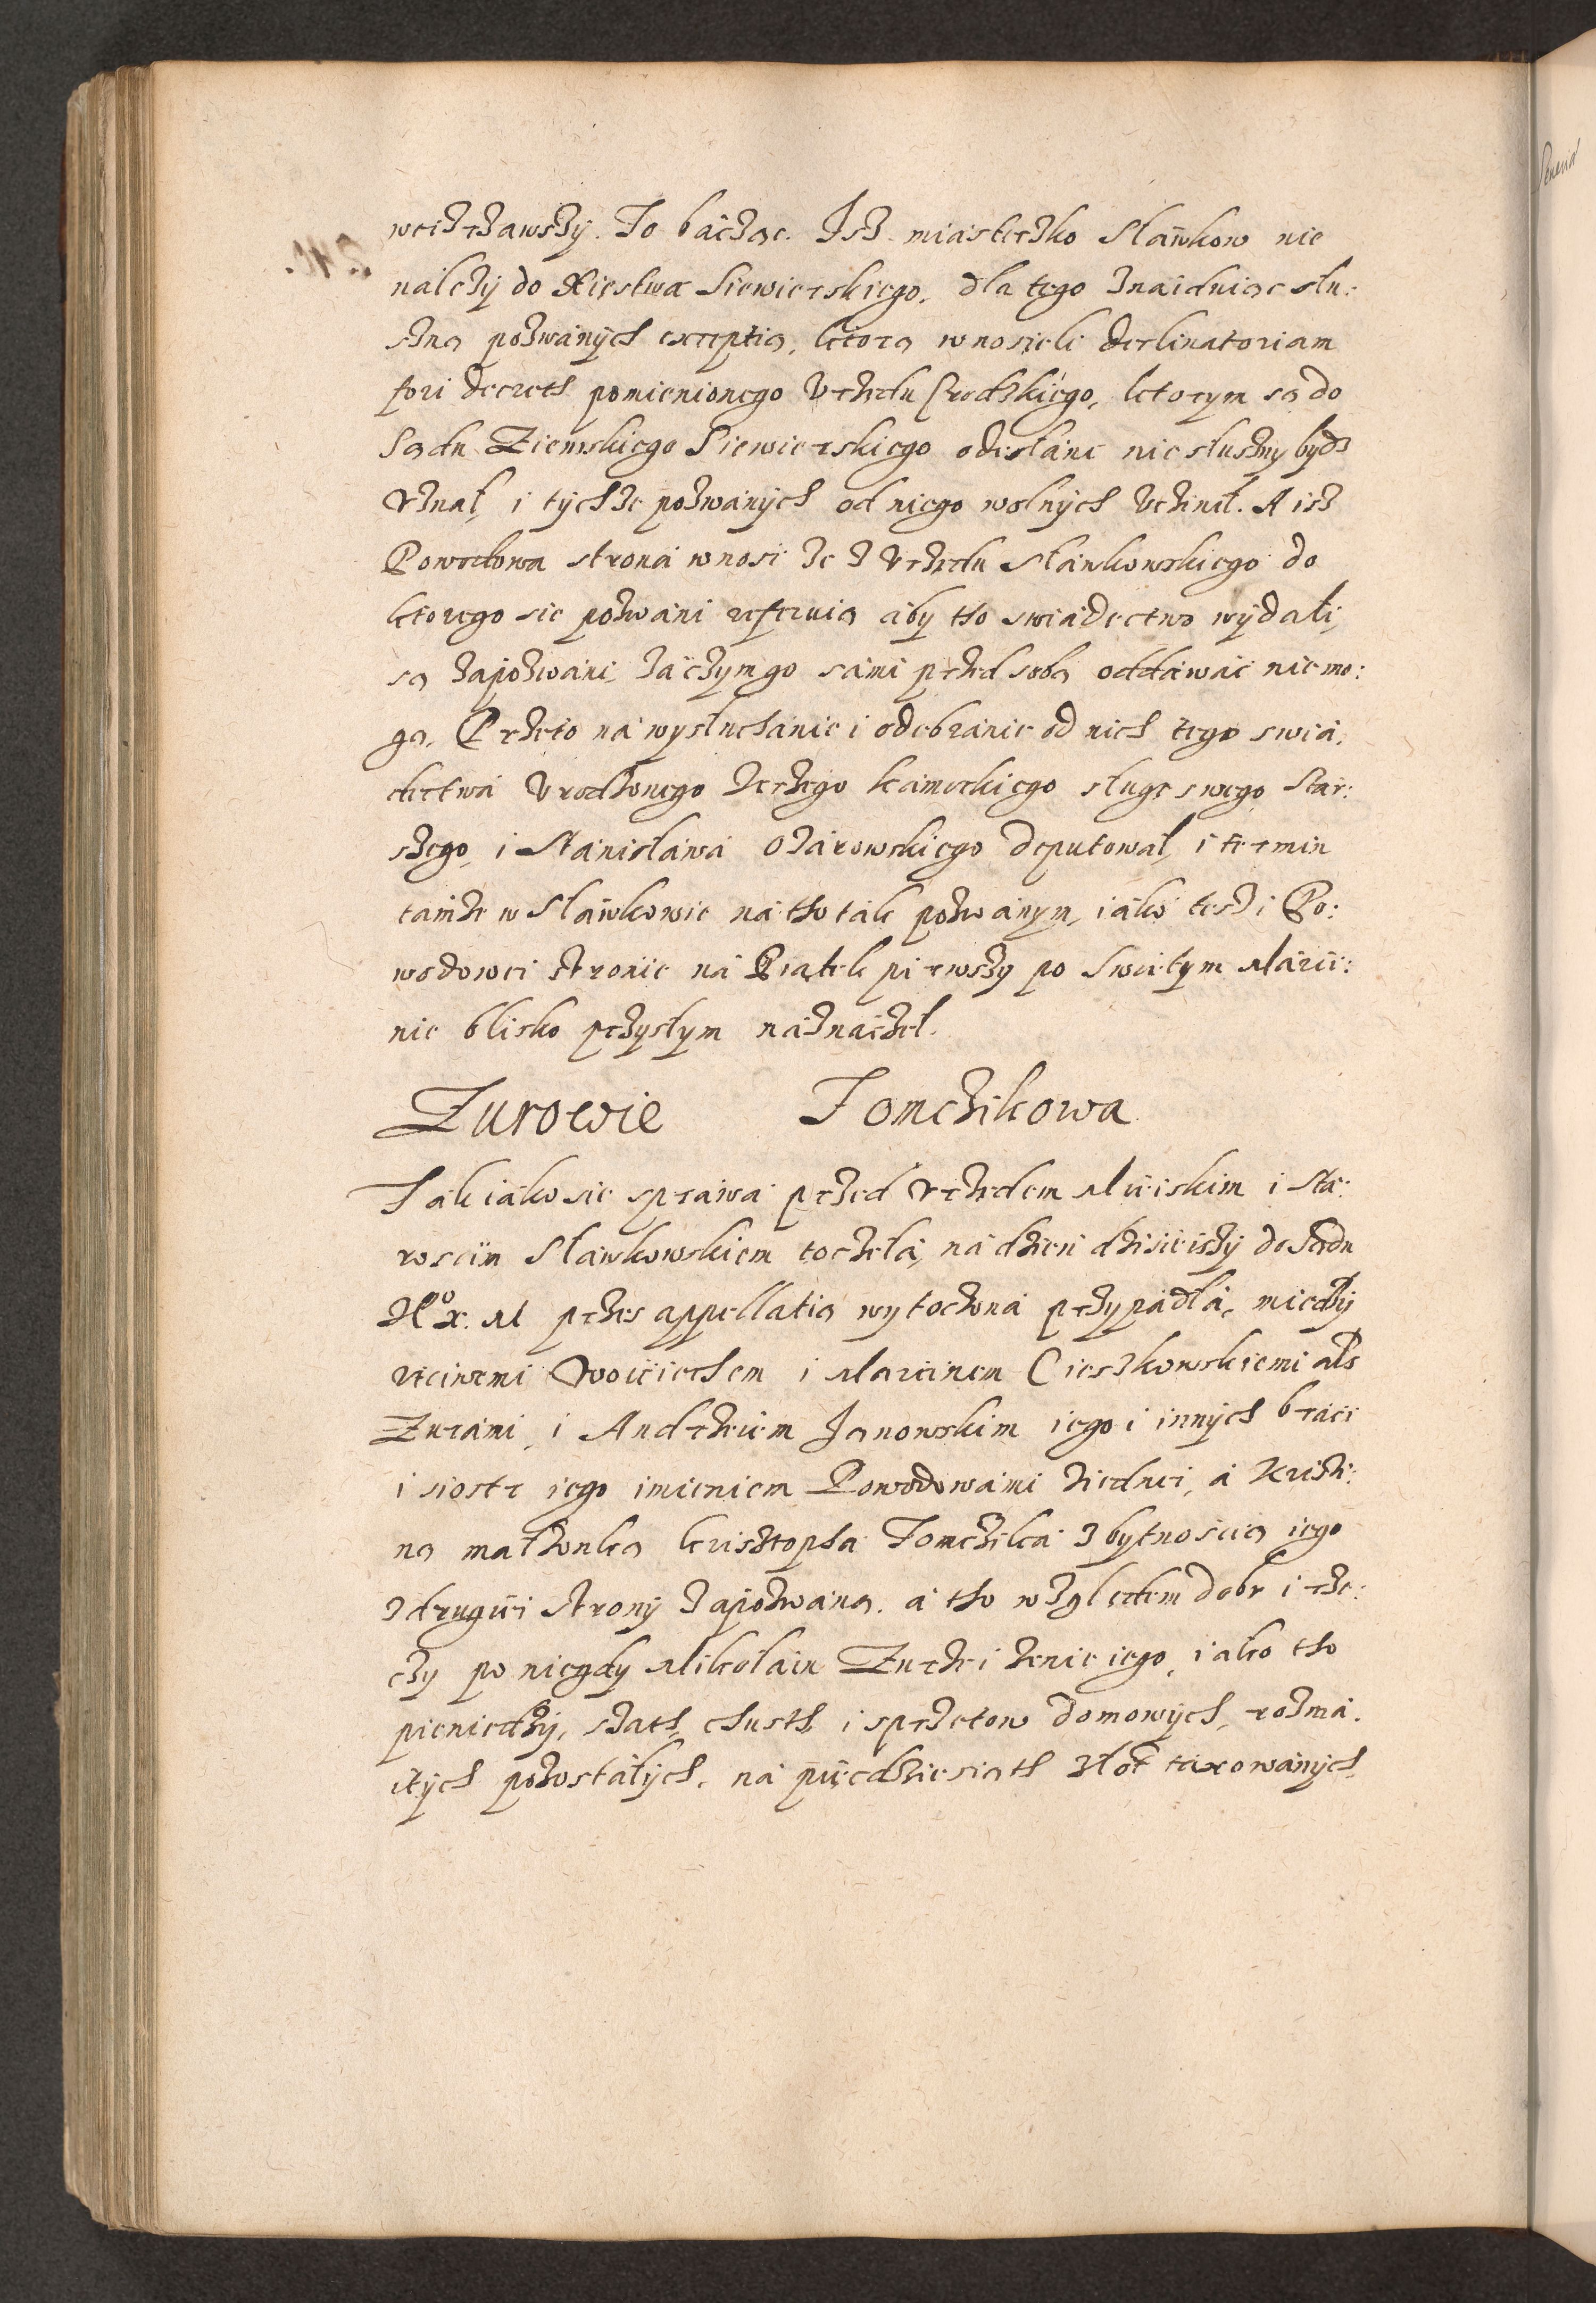 weizrzawszÿ. To bácząc. Isz miásteczko Sławkow nie
náleżÿ do Xięstwa Siewierskiego, dla tego znaiduiąc słu:
szną pozwánÿch exceptią, ktorą wnosieli declinatoriam
fori decreth pomienionego Vrzędu Grodzkiego, ktorym są do
Sądu Ziemskiego Siewierskiego odesłáni niesłuszny bydz
vznał, i tÿchże pozwánÿch od niego wolnÿch vczinił. A isz
Powodowa stroná wnosi że z Vrzędu Sławkowskiego do
ktorego sie pozwáni referuią áby tho swiádectwo wÿdáli,
są zápozwáni, záczym go sámi przed sobą oddáwáć nie mo:
gą. Przeto ná wysłuchánie i odebránie od nich tego swiá:
dectwá Vrodzonego Jerzego Kámockiego sługe swego stár:
szego, i Stánisłáwá Ożárowskiego deputował, i termin
támże w Sławkowie ná tho ták pozwánym, iáko tesz i Po:
wodowei stronie ná Piątek pierwszy po Swiętym Márci:
nie blisko przyszłym náznáczeł.
Zurowie Tomczikowa
Ták iáko sie spráwá przed Vrzędem Mieiskim i Stá:
rosciim Sławkowskiem toczełá, ná dzień dzisieiszÿ do Sądu
Je<sup>o</sup> X. M przes appellatią wytoczoná przypádłá, miedzÿ
vtciwemi Woiciechem i Marcinem Cieszkowskiemi als
Zurámi, i Andrzeiem Janowskim iego i innÿch bráci
i siostr iego imieniem Powodowámi ziednei, á Kristi:
ną małżonką Krisztopha Tomcziká z bytnością iego
z drugiei stronÿ zápozwáną. á tho względem dobr i rze:
czy po niegdy Mikołáiu Zurze i żenie iego, iáko tho
pieniedzÿ, száth, chusth i sprzętow domowÿch, rozmá:
itÿch pozostáłÿch, ná pięcdziesiąth złot táxowánÿch